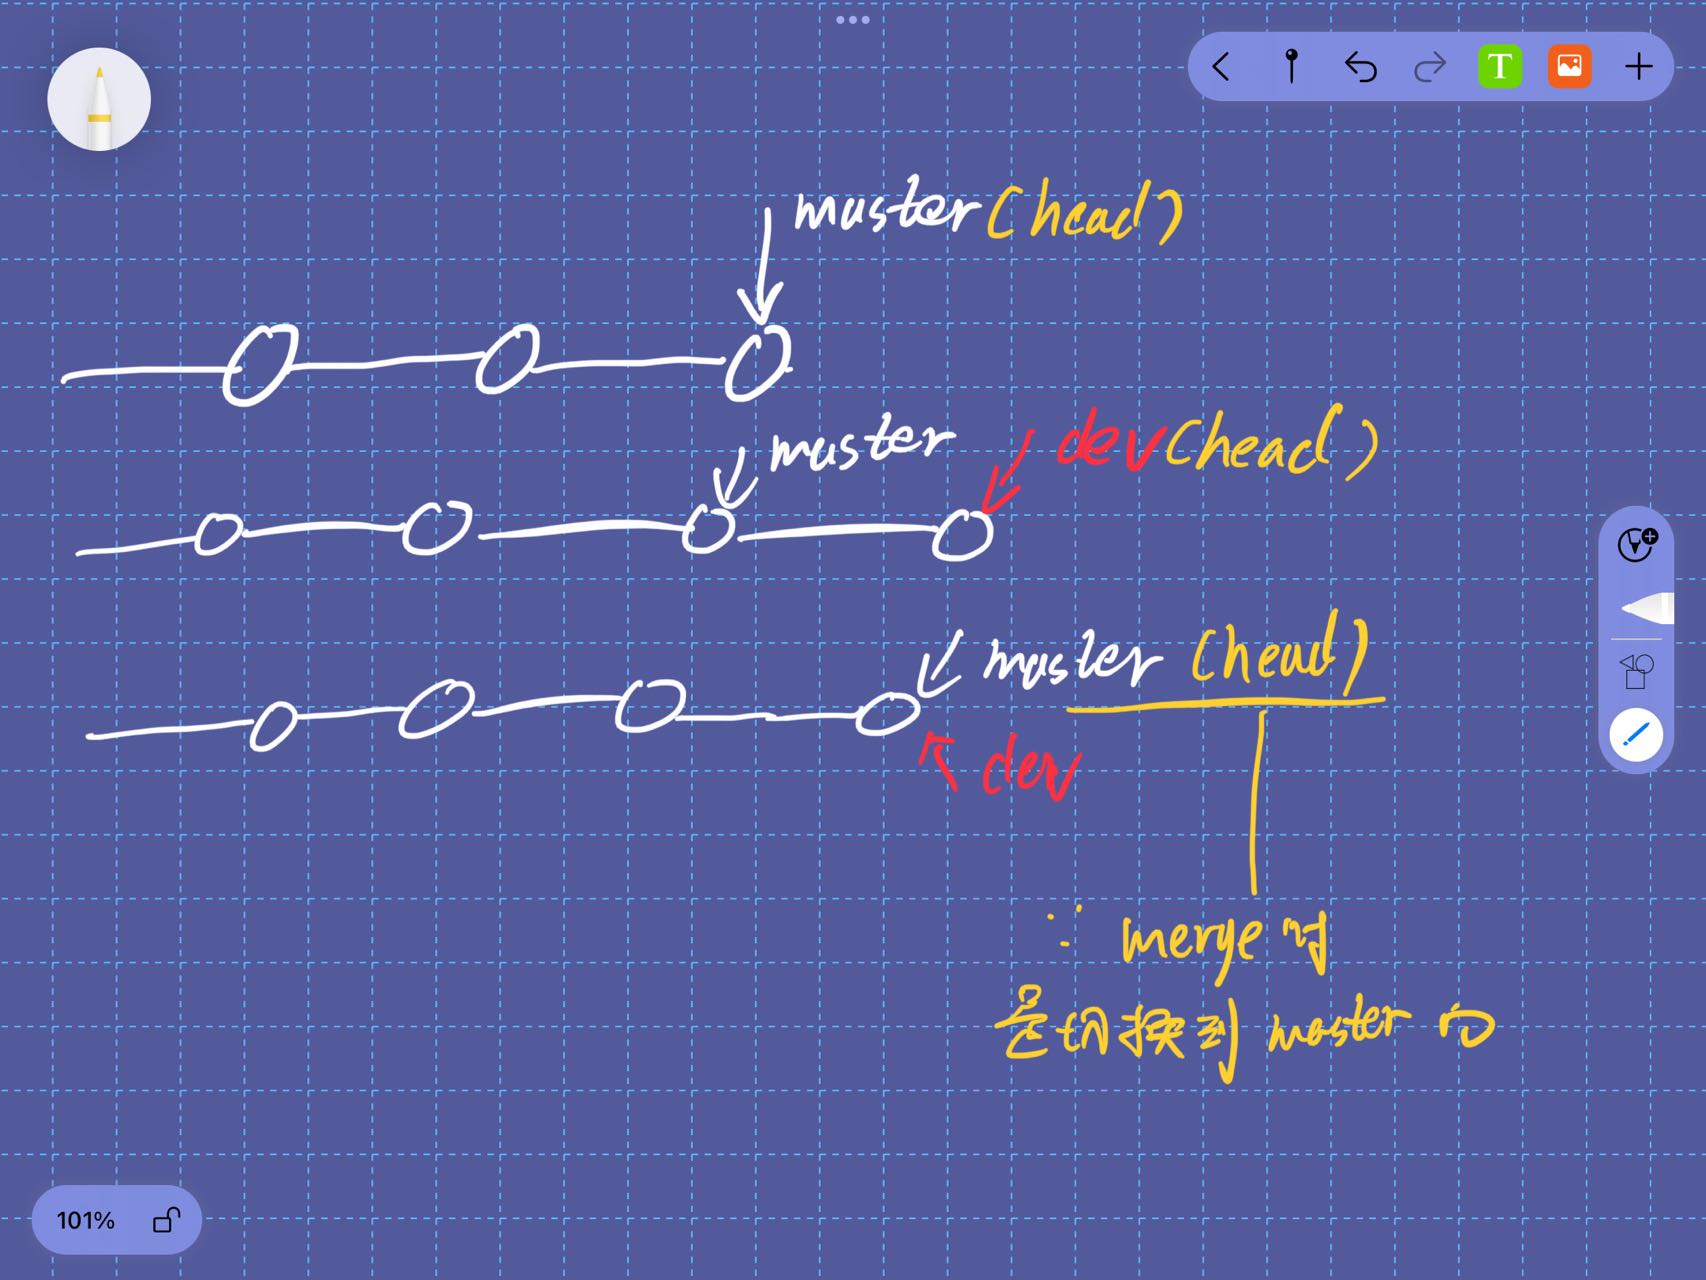 T
master (head)
master
dev (head)
master (head)
dev
∵ merge 时
是切换到 master 的
101%